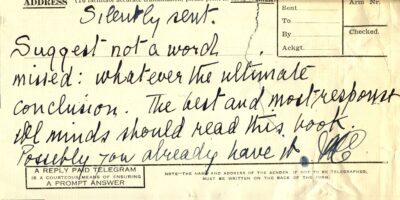 ADDRESS
Silently sent.
Suggest not a word
missed: whatever the ultimate
conclusion. The best and most respons
ible minds should read this book.
Possibly you already have it.
Sent
To
By
Ackgt.
Arm Nr.
Checked.
A REPLY PAID TELEGRAM
IS A COURTEOUS MEANS OF ENSURING
A PROMPT ANSWER
NOTE—THE NAME AND ADDRESS OF THE SENDER, IF NOT TO BE TELEGRAPHED,
MUST BE WRITTEN ON THE BACK OF THE FORM.